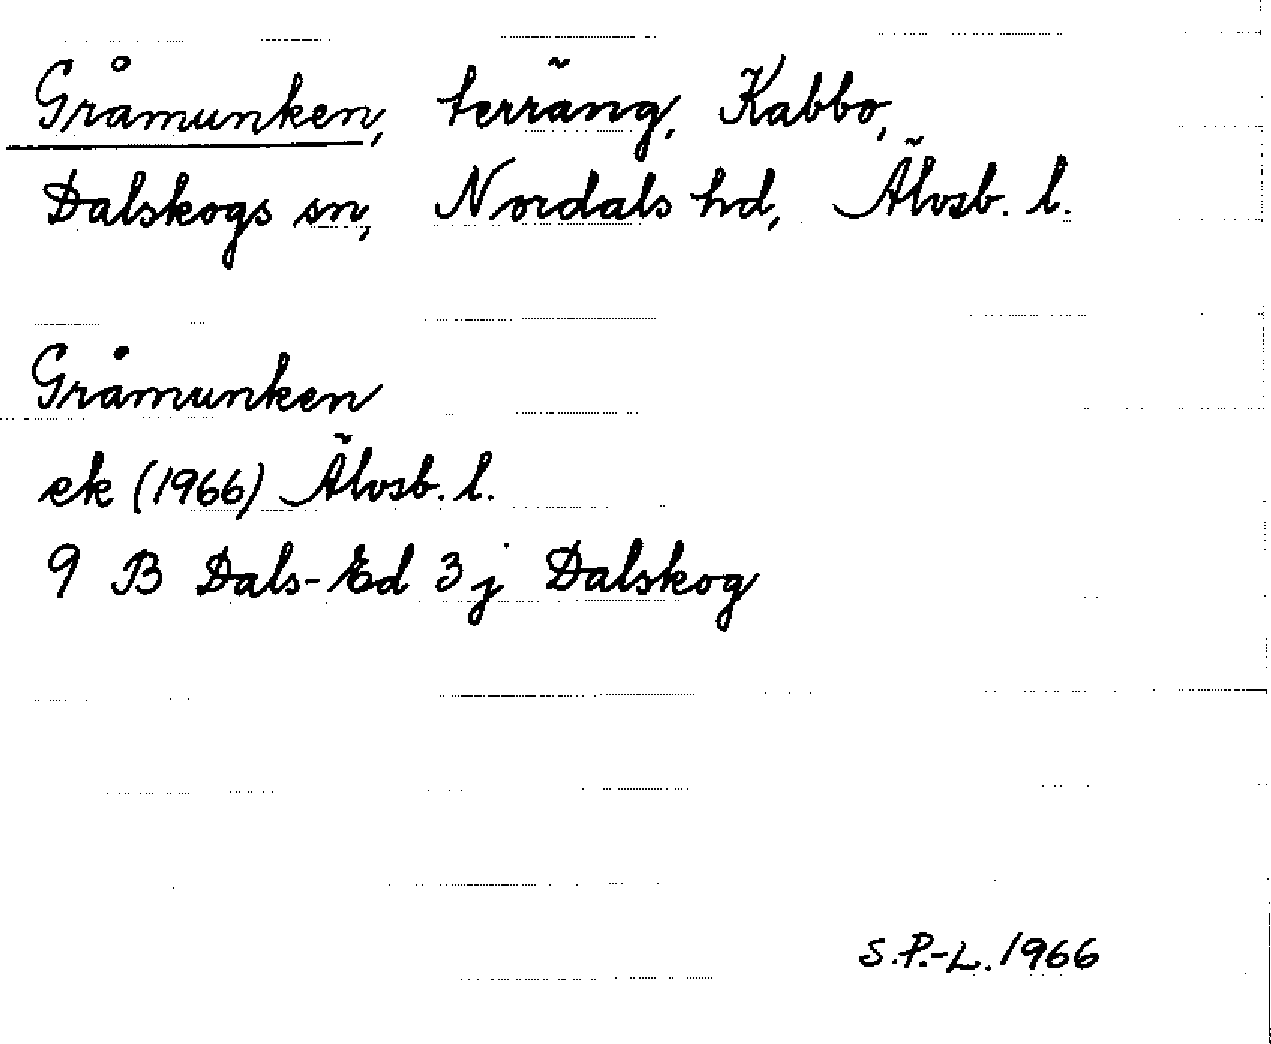 Gråmunken, terräng, Kabbo,
Dalskogs sn, Nordals hd, Älvsb. l.
Gråmunken
ek (1966) Älvsb. l.
9 B Dals-Ed 3 j Dalskog
S.P.-L. 1966